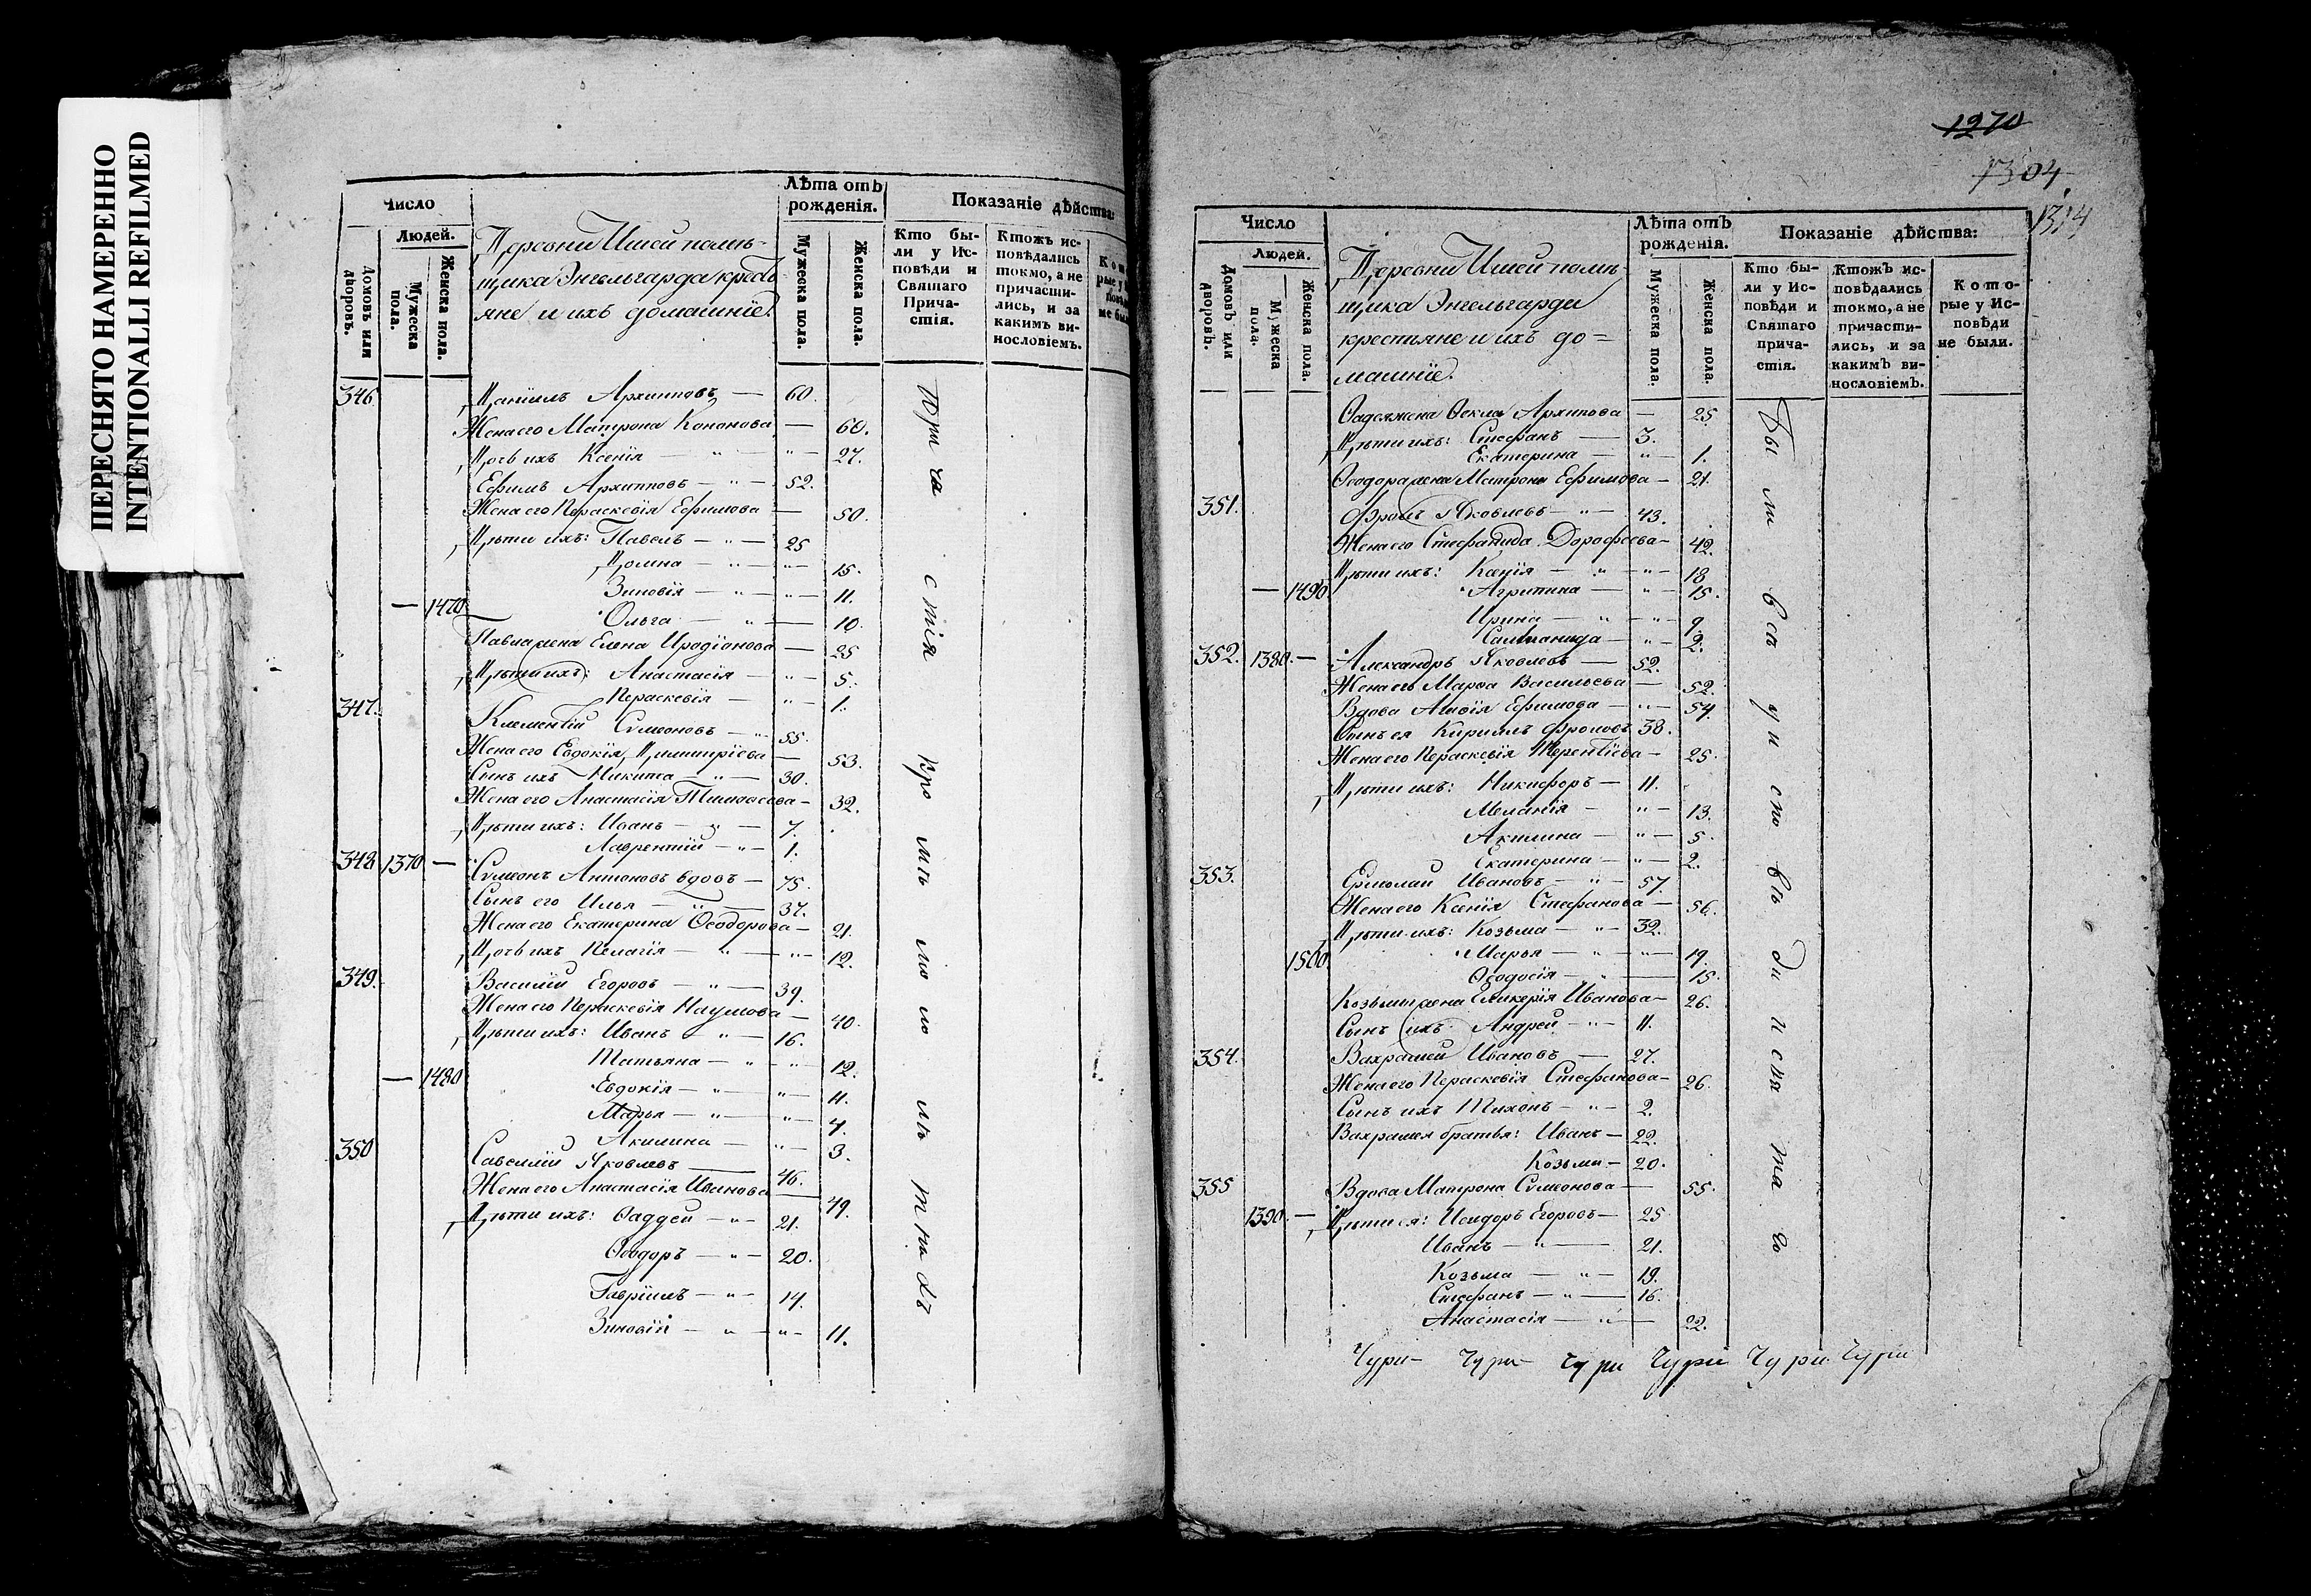 ПЕРЕСНЯТО НАМЕРЕННО
INTENTIONALLI REFILMED
Число
Людей.
Домовъ или дворовъ.
Мужеска пола.
Женска пола.
Деревни Ишеи помѣ-
щика Энгельгарда кресть
яне и ихъ домашніе.
Лѣта отъ
рожденія.
Мужеска пола.
Женска пола.
Показаніе дѣйства:
Кто бы-
ли у Ис-
повѣди и
Святаго
Прича-
стія.
Ктожъ ис-
повѣдались
токмо, а не
причасти-
лись, и за
какимъ ви-
нословіемъ.
346. Даніилъ Архиповъ — 60.
Жена его Матрона Кононова — 60.
Дочь ихъ Ксенія — " — " — 27.
Ефимъ Архиповъ — " — 52.
Жена его Параскевія Ефимова — 50.
Дѣти ихъ: Павелъ — " — 25
Домна — " — " — 15.
Зиновія — " — " — 11.
— 1470 Ольга — " — 10.
Павла жена Елена Иродіонова — 25
Дѣти ихъ: Анастасія — " — 5.
Параскевія — " — 1.
347. Климентій Сѵмеоновъ — " 55.
Жена его Евдокія Димитріева — 53.
Сынъ ихъ Никита — " — 30.
Жена его Анастасія Тимофеева — 32.
Дѣти ихъ: Иванъ — " — 7.
Лаврентій — " — 1.
348 1370 — Сѵмеонъ Антоновъ вдовъ — 75.
Сынъ его Илья — " — 37.
Жена его Екатерина Ѳеодорова — 21.
Дочь ихъ Пелагія — " — " — 12.
349. Василій Егоровъ — " — 39.
Жена его Параскевія Наумова — 40.
Дѣти ихъ: Иванъ — " — 16.
Татьяна — " — " — 12.
— 1480 Евдокія — " — " — 11.
Марья — " — " — 4.
Акилина — " — 3.
350 Савелій Яковлевъ — 46.
Жена его Анастасія Иванова — 49.
Дѣти ихъ: Ѳаддей — " — 21.
Ѳеодоръ — " — 20.
Гавріилъ — " — 14.
Зиновій — " — " — 11.
При ча стія
1270
1304
1314
Число
Людей.
Домовъ или дворовъ.
Мужеска пола.
Женска пола.
Деревни Ишеи помѣ-
щика Энгельгарди
крестьяне и ихъ до=
машніе.
Лѣта отъ
рожденія.
Мужеска пола.
Женска пола.
Показаніе дѣйства:
Кто бы-
ли у Ис-
повѣди и
Святаго
прича-
стія.
Ктожъ ис-
повѣдались
токмо, а не
причасти-
лись, и за
какимъ ви-
нословіемъ.
Кото-
рые у Ис-
повѣди
не были.
Ѳадея жена Ѳекла Архипова — 25.
Дѣти ихъ: Стефанъ — 3.
Екатерина — " — 1.
Ѳеодора жена Матрона Ефимова — 21.
351. Фролъ Яковлевъ — " — 43.
Жена его Стефанида Дорофеева — 42.
Дѣти ихъ: Ксенія — " — " — 18
— 1490 Агрипина — " — 15.
Ирина — " — " — 9.
— " — 2.
352. 1380. — Александръ Яковлевъ — 52.
Жена его Марѳа Васильева — 52.
Вдова Ефимова — " — 54.
Сынъ ея Кирилъ Фроловъ 38.
Жена его Параскевія Терентіева — 25.
Дѣти ихъ: Никифоръ — 11.
Меланія — " — 13.
Акилина — " — 5.
Екатерина — " — 2.
353. Ермолай Ивановъ — " — 57.
Жена его Ксенія Стефанова — 56.
Дѣти ихъ: Козьма — " — 32.
1500. Марья — " — " — 19.
Ѳеодосія — " — 15.
Козьмы жена Гликерія Иванова — 26.
Сынъ ихъ Андрей — " — 11.
354. Вахрамей Ивановъ — 27.
Жена его Параскевія Стефанова — 26.
Сынъ ихъ Тихонъ — " — 2.
Вахрамея братья: Иванъ — 22.
Козьма — 20.
355 Вдова Матрона Сѵмеонова — 55.
1390. — Дѣти ея: Исидоръ Егоровъ — 25
Иванъ — " — 21.
Козьма — " — 19.
Стефанъ — " — 16.
Анастасія — " — 22.
Бы ли всѣ у и спо вѣ ди и свя та го
Чури- Чури- Чури Чури Чури Чури